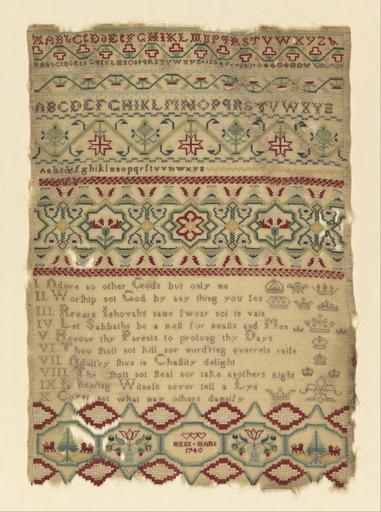 AABCDEFGHIKLMNOPQRSTVWXYZ
ABCDEFGHIKLMNOPQRSTVWXYZ
aabcdefghiklmnopqrstvuwxyz
I Adore no other Gods but only me
II Worship not God by any thing you see
III Revere Jehovahs name swear not in vain
IV Let Sabbaths be a rest for beasts and Men
V Honour thy Parents to prolong thy Days
VI Thou shalt not Kill nor murd'ring quarrels raise
VII Adultry shun in Chastity delight
VIII Thou shalt not steal nor take anothers right
IX In bearing Witness never tell a Lye
X Covet not what may others damnify
1740